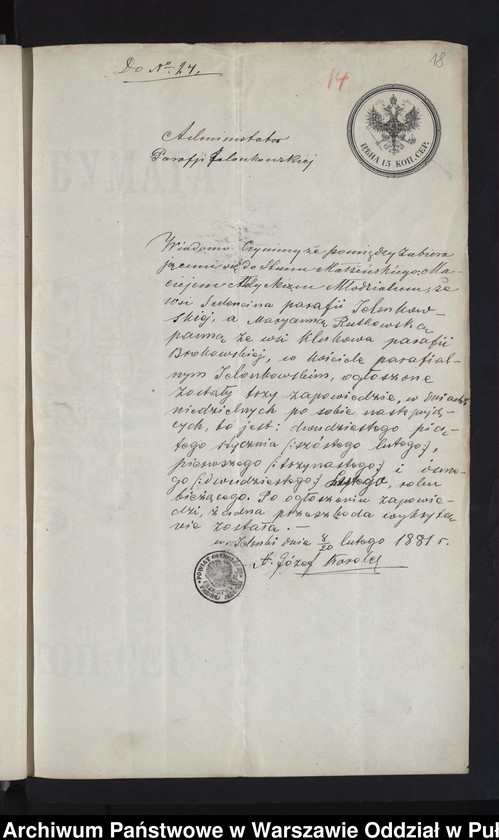 Do № 24.
14
18
ЦѢНА 15 КОП. СЕР.
Administrator
Parafji Jelonkowskiej
Wiadomo Czynimy że pomiędzy zabiera
jącemi się do Stanu Małżeńskiego: Ma-
ciejem Młodzianem, ze
wsi parafii Jelonkow-
skiej, a Maryanną Rutkowską
panną ze wsi Klukowa parafii
Brokowskiej, w kościele parafial-
nym Jelonkowskim, ogłoszone
zostały trzy zapowiedzie, w dniach
niedzielnych po sobie następują-
cych, to jest: dwudziestego pią-
tego stycznia /:szóstego lutego:/,
pierwszego /:trzynastego:/ i ósme-
go /:dwudziestego:/ Lutego, roku
bieżącego. Po ogłoszeniu zapowie-
dzi, żadna przeszkoda wykryta
nie została. —
w Jelonki dnia 8/20 lutego 1881 r.
X. Józef
Archiwum Państwowe w Warszawie Oddział w Puł